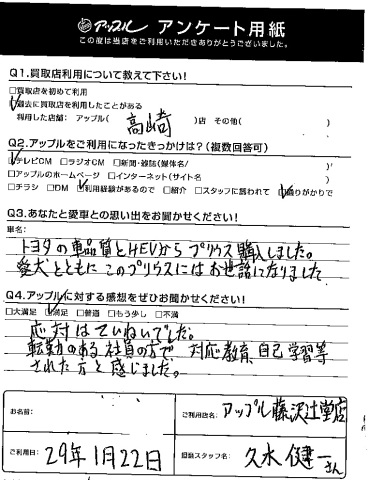 アップル アンケート用紙
この度は当店をご利用いただきありがとうございました。
Q1.買取店利用について教えて下さい!
□買取店を初めて利用
☑過去に買取店を利用したことがある
利用した店舗: アップル( 高崎 )店 その他( )
Q2.アップルをご利用になったきっかけは?(複数回答可)
☑テレビCM □ラジオCM □新聞・雑誌(媒体名/ )
□アップルのホームページ □インターネット(サイト名 )
□チラシ □DM ☑利用経験があるので □紹介 □スタッフに誘われて ☑通りがかりで
Q3.あなたと愛車との思い出をお聞かせください!
車名:
トヨタの車品質とHEVから プリウス購入しました。
愛犬とともに このプリウスにはお世話になりました
Q4.アップルに対する感想をぜひお聞かせください!
□大満足 ☑満足 □普通 □もう少し □不満
応対はていねいでした。
転勤のある社員の方で、対応教育、自己学習等
された方と感じました。
お名前:
ご利用店名: アップル藤沢辻堂店
ご利用日: 29年1月22日
担当スタッフ名: 久水 健一さん